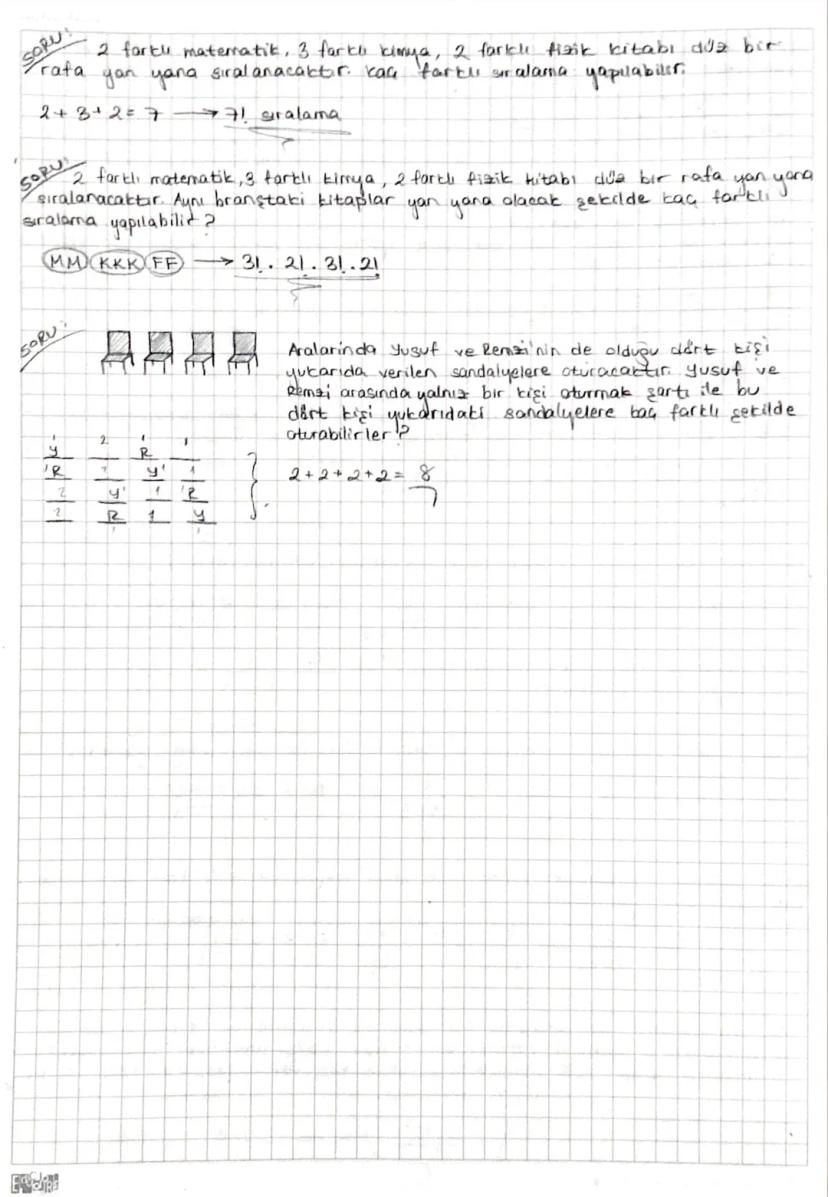 SORU:
2 farklı matematik, 3 farklı kimya, 2 farklı fizik kitabı düz bir
rafa yan yana sıralanacaktır. kaç farklı sıralama yapılabilir.
2 + 3 + 2 = 7 → 7! sıralama
SORU:
2 farklı matematik, 3 farklı kimya, 2 farklı fizik kitabı düz bir rafa yan yana
sıralanacaktır. Aynı branştaki kitaplar yan yana olacak şekilde kaç farklı
sıralama yapılabilir?
MM KKK FF → 3! . 2! . 3! . 2!
SORU:
Aralarında Yusuf ve Remzi'nin de olduğu dört kişi
yukarıda verilen sandalyelere oturacaktır. Yusuf ve
Remzi arasında yalnız bir kişi oturmak şartı ile bu
dört kişi yukarıdaki sandalyelere kaç farklı şekilde
oturabilirler?
1 2 1 1
Y R
R 2 Y 1
2 Y 1 R
2 R 1 Y
2 + 2 + 2 + 2 = 8